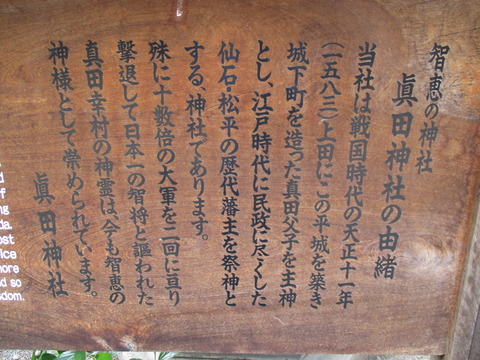 智恵の神社
眞田神社の由緒
当社は戦国時代の天正十一年
(一五八三)上田にこの平城を築き
城下町を造った真田父子を主神
とし、江戸時代に民政に尽くした
仙石・松平の歴代藩主を祭神と
する、神社であります。
殊に十数倍の大軍を二回に亘り
撃退して日本一の智将と謳われた
真田幸村の神霊は、今も智恵の
神様として崇められています。
眞田神社
d
of
ng
da.
ost
ice
more
d so
dom.